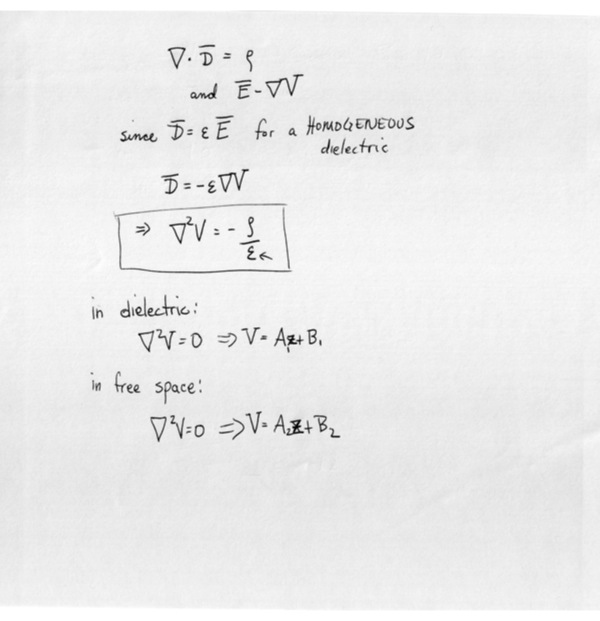 ∇·D̄ = ρ
and Ē - ∇V
since D̄ = ε Ē for a HOMOGENEOUS
dielectric
D̄ = -ε∇V
⇒ ∇²V = - ρ/ε ←
in dielectric:
∇²V = 0 ⇒ V = A₁z + B₁
in free space:
∇²V = 0 ⇒ V = A₂z + B₂